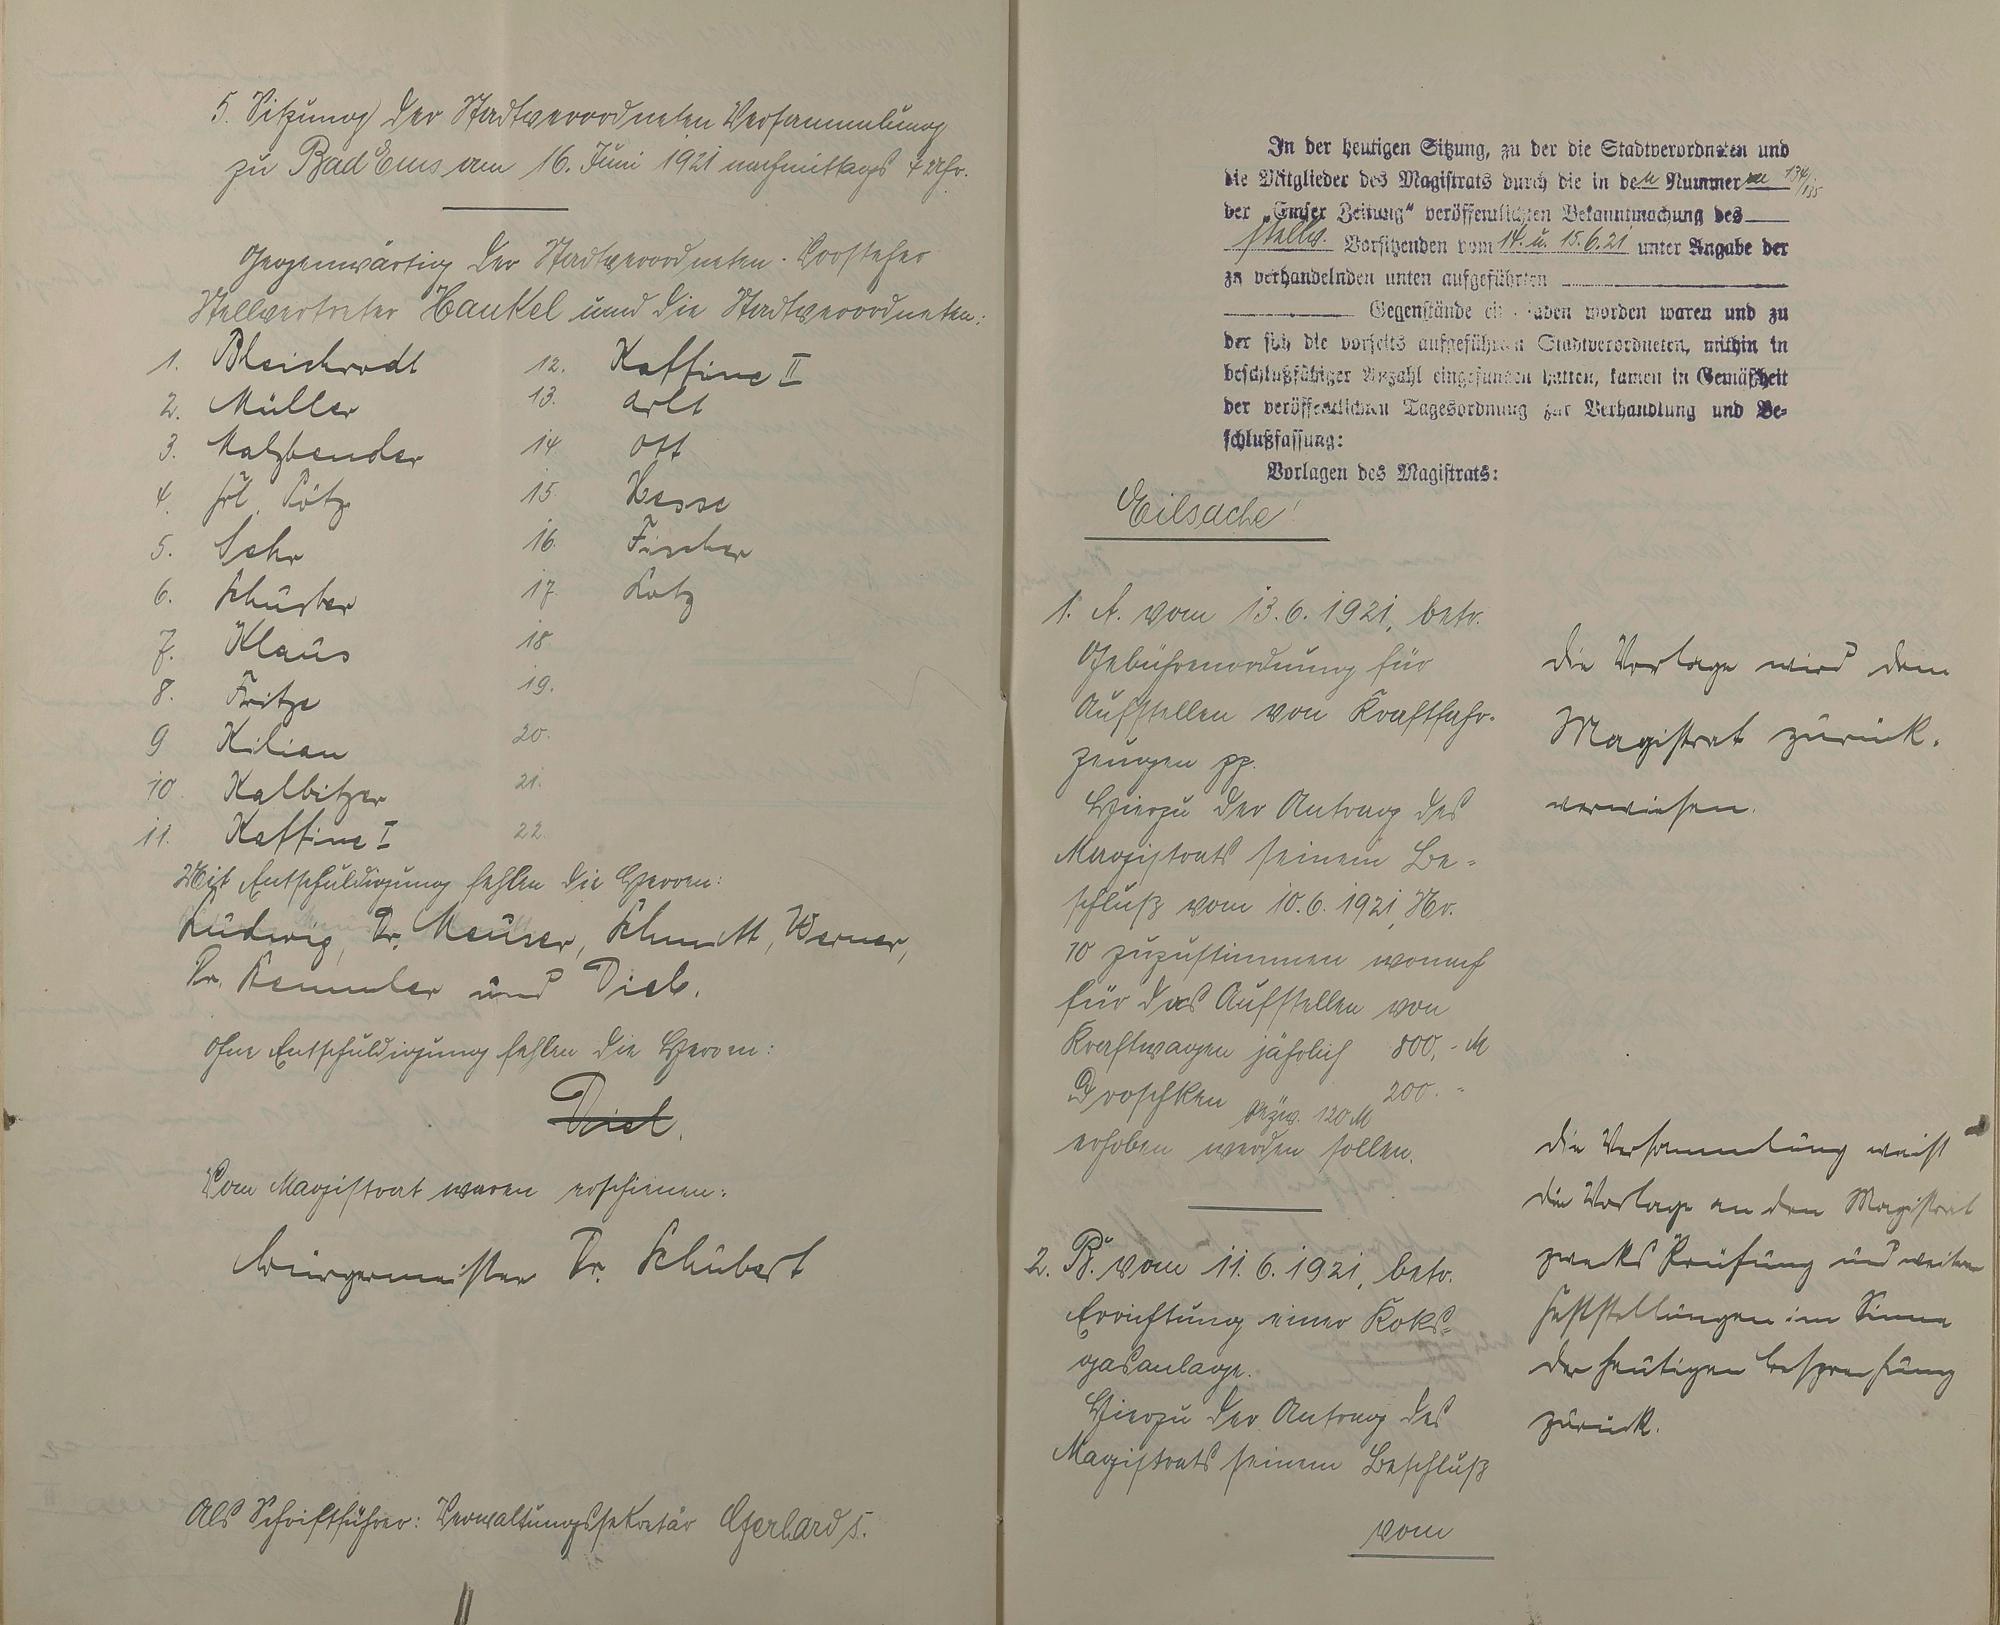 5. Sitzung der Stadtverordneten Versammlung
zu Bad Ems am 16. Juni 1921 nachmittags 7 Uhr.
Gegenwärtig der Stadtverordneten-Vorsteher
Stellvertreter Hankel und die Stadtverordneten:
1. Bleichrodt
2. Müller
3. Malzbender
4. Frl. Pötz
5. Sehr
6. Schuster
7. Klaus
8. Fritze
9 Kilian
10 Kalbitzer
11. Kaffine I
12. Kaffine II
13. Arlt
14 Ott
15. Hesse
16. Fischer
17. Lotz
18.
19.
20.
21.
22.
Mit Entschuldigung fehlen die Herren:
Ludwig, Dr. Meuser, Schmitt, Werner,
Dr. Remmler und Diel.
Ohne Entschuldigung fehlen die Herren:
Diel.
Vom Magistrat waren erschienen:
Bürgermeister Dr. Schubert
Als Schriftführer: Verwaltungssekretär Gerhards.
In der heutigen Sitzung, zu der die Stadtverordneten und
die Mitglieder des Magistrats durch die in den Nummern 134/135
der „Emser Zeitung“ veröffentlichten Bekanntmachung des
stellv. Vorsitzenden vom 14. u. 15.6.21 unter Angabe der
zu verhandelnden unten aufgeführten
Gegenstände eingeladen worden waren und zu
der sich die vorseits aufgeführten Stadtverordneten, mithin in
beschlußfähiger Anzahl eingefunden hatten, kamen in Gemäßheit
der veröffentlichten Tagesordnung zur Verhandlung und Be-
schlußfassung:
Vorlagen des Magistrats:
Eilsache!
1. A. vom 13.6.1921, betr.
Gebührenordnung für
Aufstellen von Kraftfahr-
zeugen pp.
Hierzu der Antrag des
Magistrats seinem Be-
schluß vom 10.6.1921, Nr.
10 zuzustimmen wonach
für das Aufstellen von
Kraftwagen jährlich 800,- M
Droschken 200.-"
bezw. 120 M
erhoben werden sollen.
Die Vorlage wird dem
Magistrat zurück-
verwiesen.
2. B. vom 11.6.1921, betr.
Errichtung einer Koks-
gasanlage.
Hierzu der Antrag des
Magistrats seinem Beschluß
vom
Die Versammlung weist
die Vorlage an den Magistrat
zwecks Prüfung und weiterer
Feststellungen im Sinne
der heutigen Besprechung
zurück.